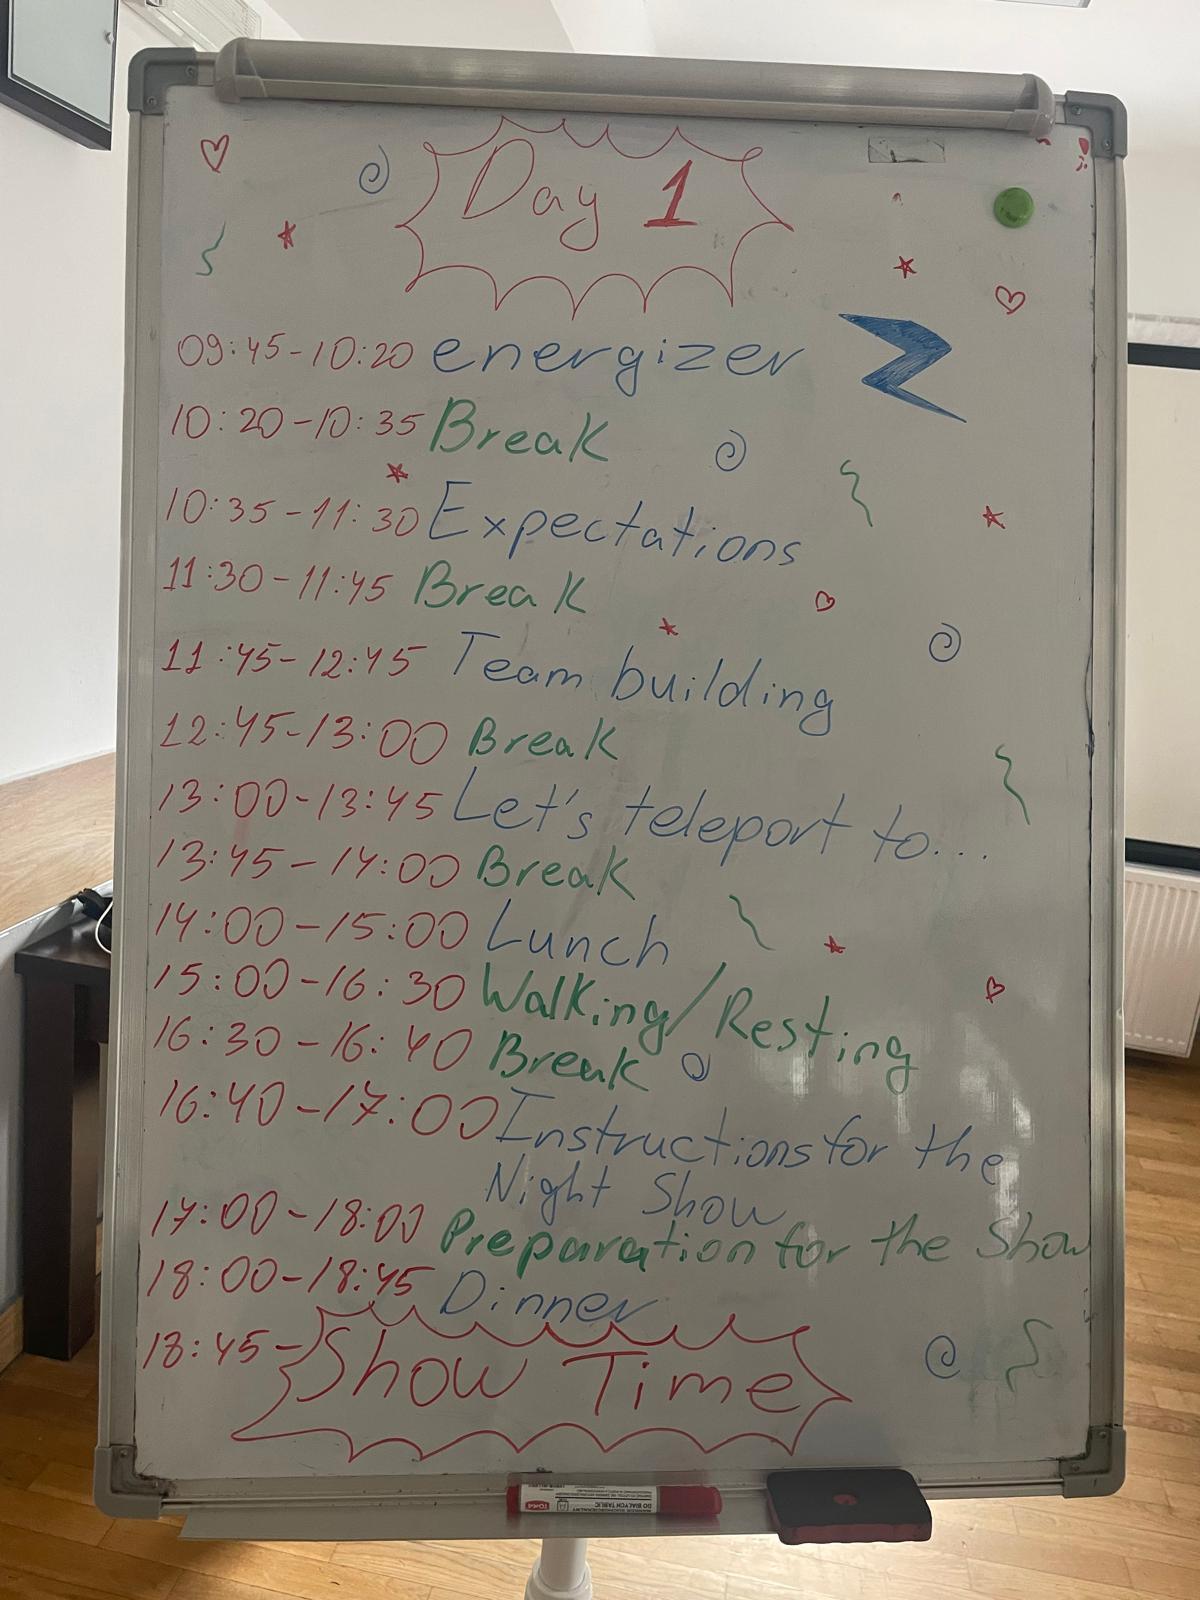 Day 1
09:45-10:20 energizer
10:20-10:35 Break
10:35-11:30 Expectations
11:30-11:45 Break
11:45-12:45 Team building
12:45-13:00 Break
13:00-13:45 Let's teleport to...
13:45-14:00 Break
14:00-15:00 Lunch
15:00-16:30 Walking/Resting
16:30-16:40 Break
16:40-17:00 Instructions for the
Night Show
17:00-18:00 Preparation for the Show
18:00-18:45 Dinner
18:45- Show Time
DO BIAŁYCH TABLIC